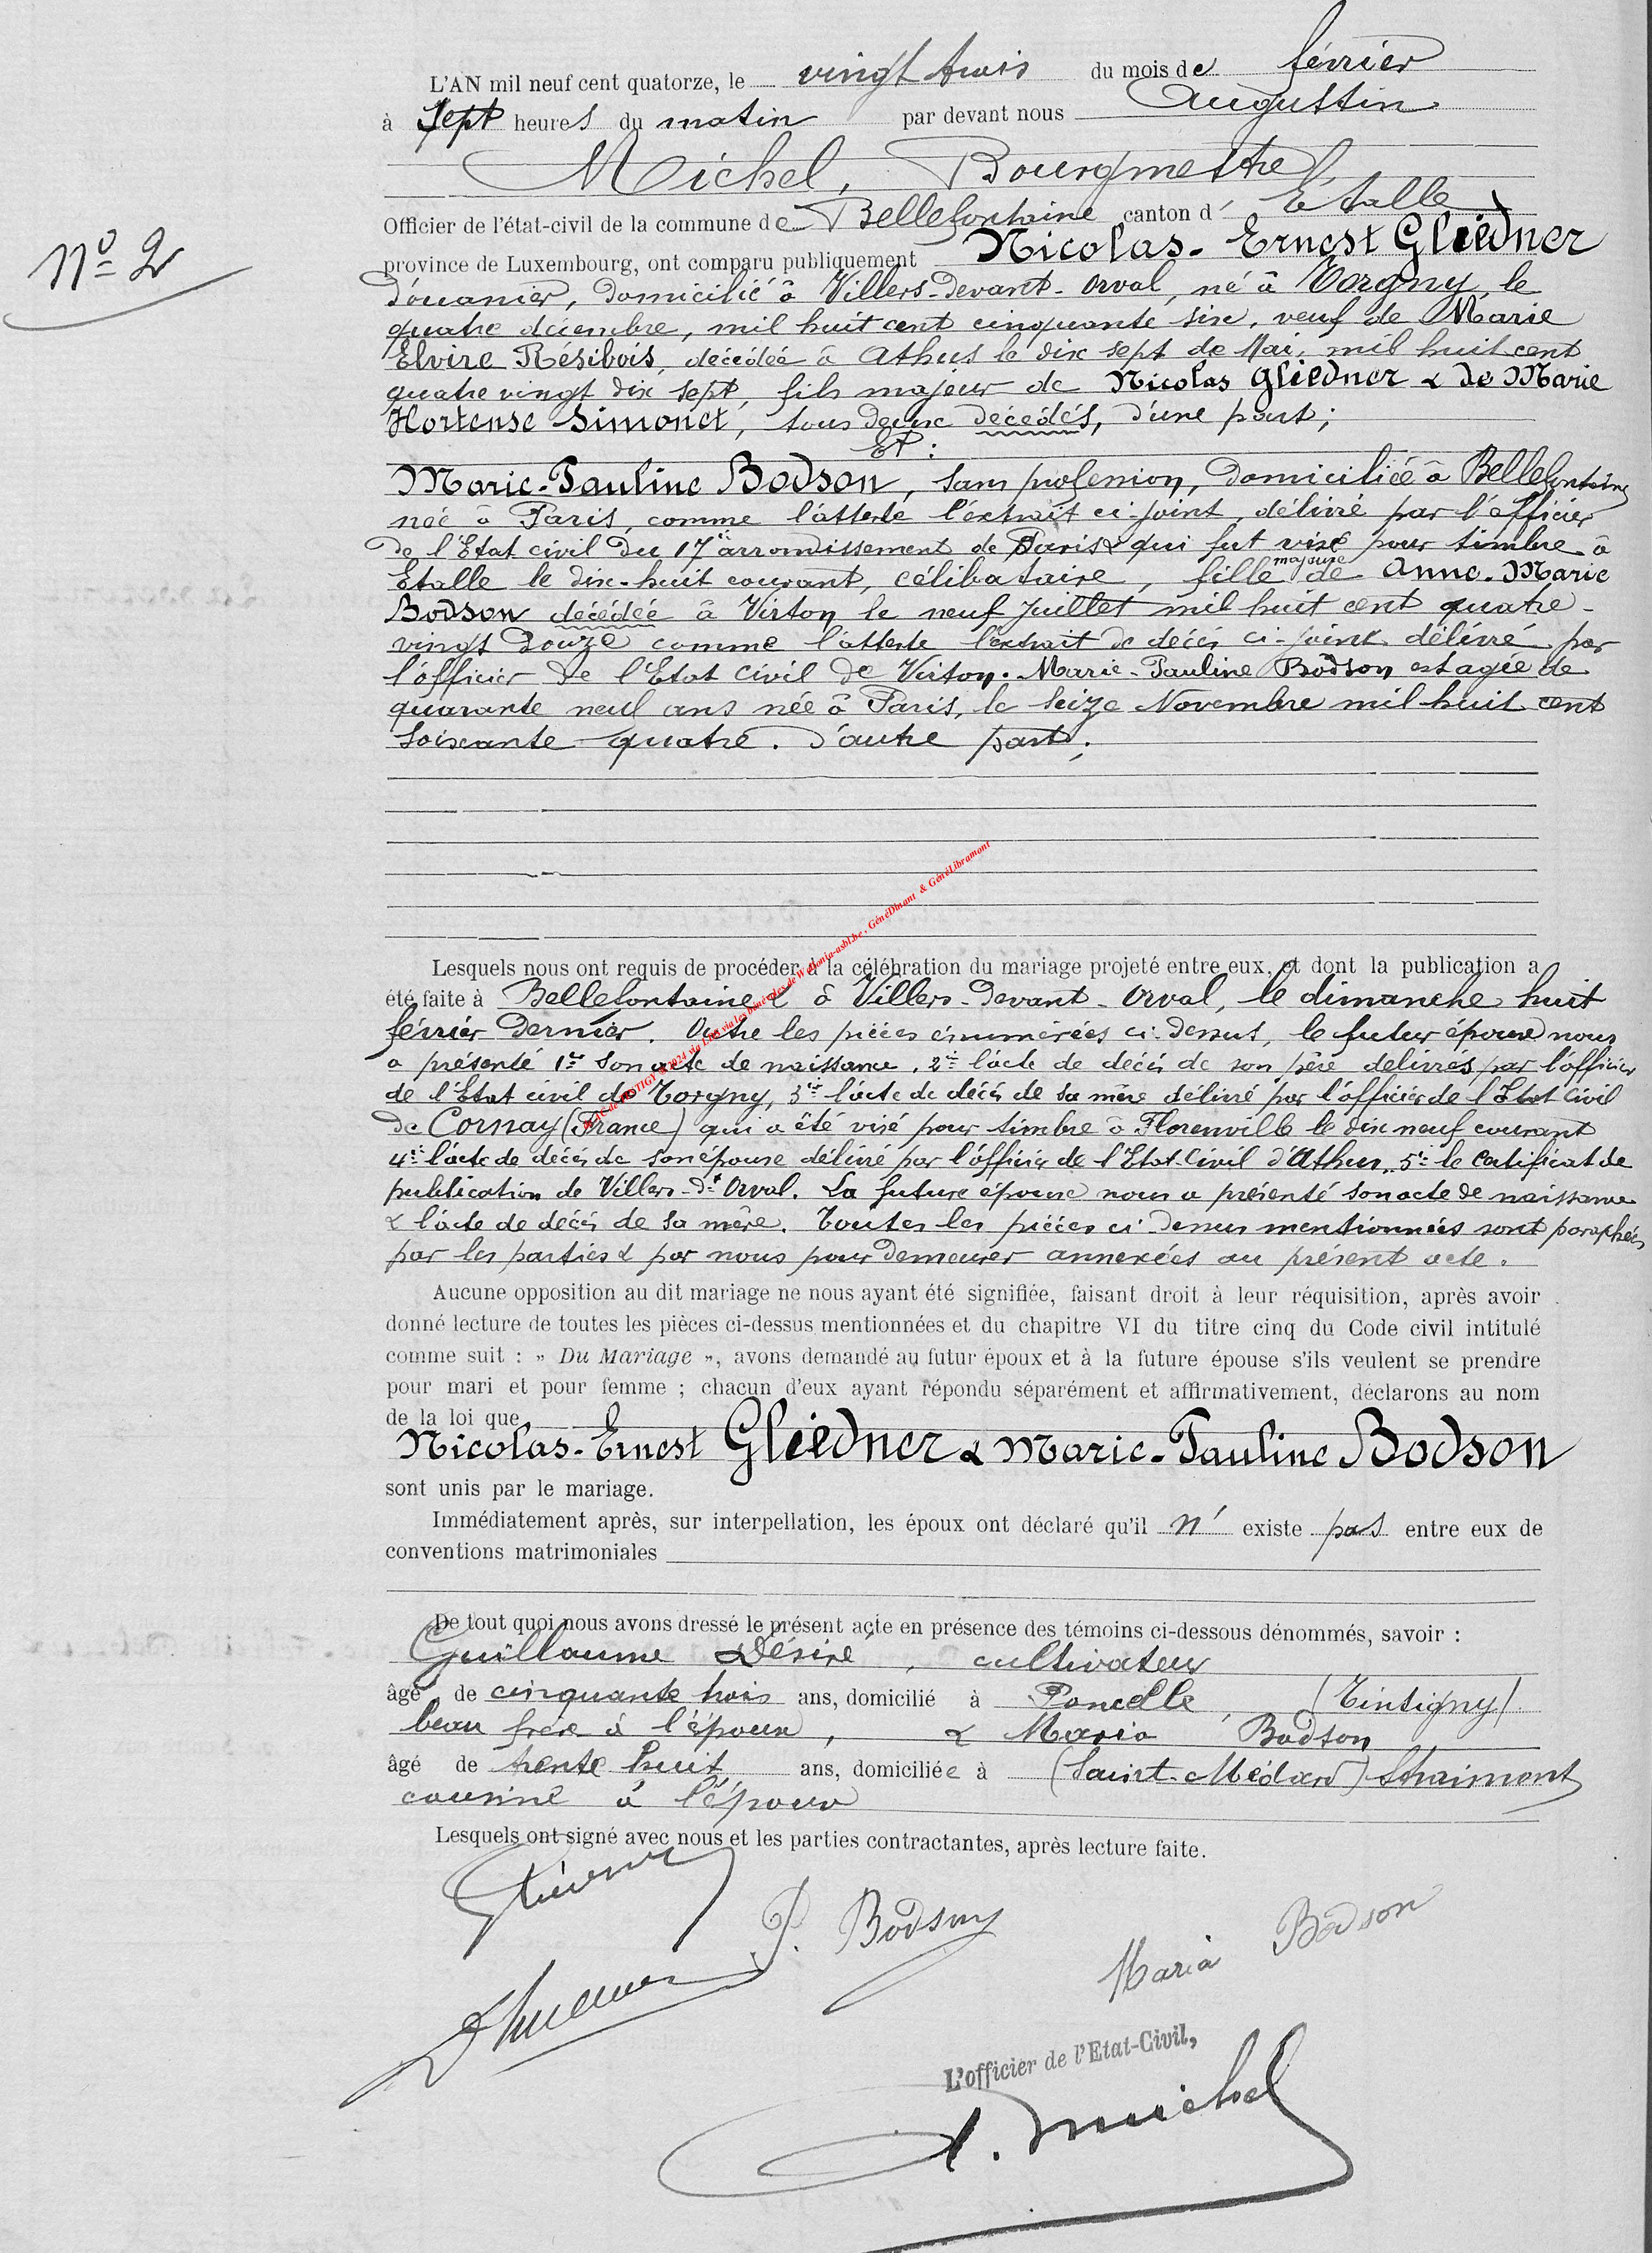 L'AN mil neuf cent quatorze, le vingt trois du mois de février
à sept heures du matin par devant nous Augustin
Michel, Bourgmestre,
Nº 2
Officier de l'état-civil de la commune de Bellefontaine canton d' Etalle
province de Luxembourg, ont comparu publiquement Nicolas-Ernest Gliedner
douanier, domicilié à Villers-devant-Orval, né à Torgny, le
quatre décembre, mil huit cent cinquante six, veuf de Marie
Elvire Résibois, décédée à Athus le dix sept de Mai, mil huit cent
quatre vingt dix sept, fils majeur de Nicolas Gliedner & de Marie
Hortense Simonet, tous deux décédés, d'une part;
Et :
Marie-Pauline Bodson, sans profession, domiciliée à Bellefontaine
née à Paris, comme l'atteste l'extrait ci-joint, délivré par l'officier
de l'Etat civil du 17e arrondissement de Paris & qui fut visé pour timbre à
Etalle le dix-huit courant, célibataire, fille majeure de Anne-Marie
Bodson décédée à Virton le neuf Juillet mil huit cent quatre-
vingt douze comme l'atteste l'extrait de décès ci-joint délivré par
l'officier de l'Etat civil de Virton. Marie-Pauline Bodson est agée de
quarante neuf ans née à Paris, le seize Novembre mil huit cent
soixante quatre. d'autre part;
Lesquels nous ont requis de procéder à la célébration du mariage projeté entre eux, et dont la publication a
été faite à Bellefontaine & à Villers-devant-Orval, le dimanche huit
février dernier. Outre les pièces énumérées ci-dessus, le futur époux nous
a présenté 1er son acte de naissance, 2e l'acte de décès de son père délivrés par l'officier
de l'Etat civil de Torgny, 3e l'acte de décès de sa mère délivré par l'officier de l'Etat Civil
de Cornay (France) qui a été visé pour timbre à Florenville le dix neuf courant
4e l'acte de décès de son épouse délivré par l'officier de l'Etat-Civil d'Athus, 5e le certificat de
publication de Villers-dt Orval. La future épouse nous a présenté son acte de naissance
& l'acte de décès de sa mère. Toutes les pièces ci-dessus mentionnées sont paraphées
par les parties & par nous pour demeurer annexées au présent acte.
Aucune opposition au dit mariage ne nous ayant été signifiée, faisant droit à leur réquisition, après avoir
donné lecture de toutes les pièces ci-dessus mentionnées et du chapitre VI du titre cinq du Code civil intitulé
comme suit : » Du Mariage », avons demandé au futur époux et à la future épouse s'ils veulent se prendre
pour mari et pour femme ; chacun d'eux ayant répondu séparément et affirmativement, déclarons au nom
de la loi que
Nicolas-Ernest Gliedner & Marie-Pauline Bodson
sont unis par le mariage.
Immédiatement après, sur interpellation, les époux ont déclaré qu'il n' existe pas entre eux de
conventions matrimoniales
De tout quoi nous avons dressé le présent acte en présence des témoins ci-dessous dénommés, savoir :
Guillaume Désiré, cultivateur
âgé de cinquante trois ans, domicilié à Poncelle (Tintigny)
beau frère à l'époux, & Maria Bodson
âgé de trente huit ans, domiciliée à (Saint-Médard) Straimont
cousine à l'époux
Lesquels ont signé avec nous et les parties contractantes, après lecture faite.
P. Bodson
Maria Bodson
L'officier de l'Etat-Civil,
A. Michel